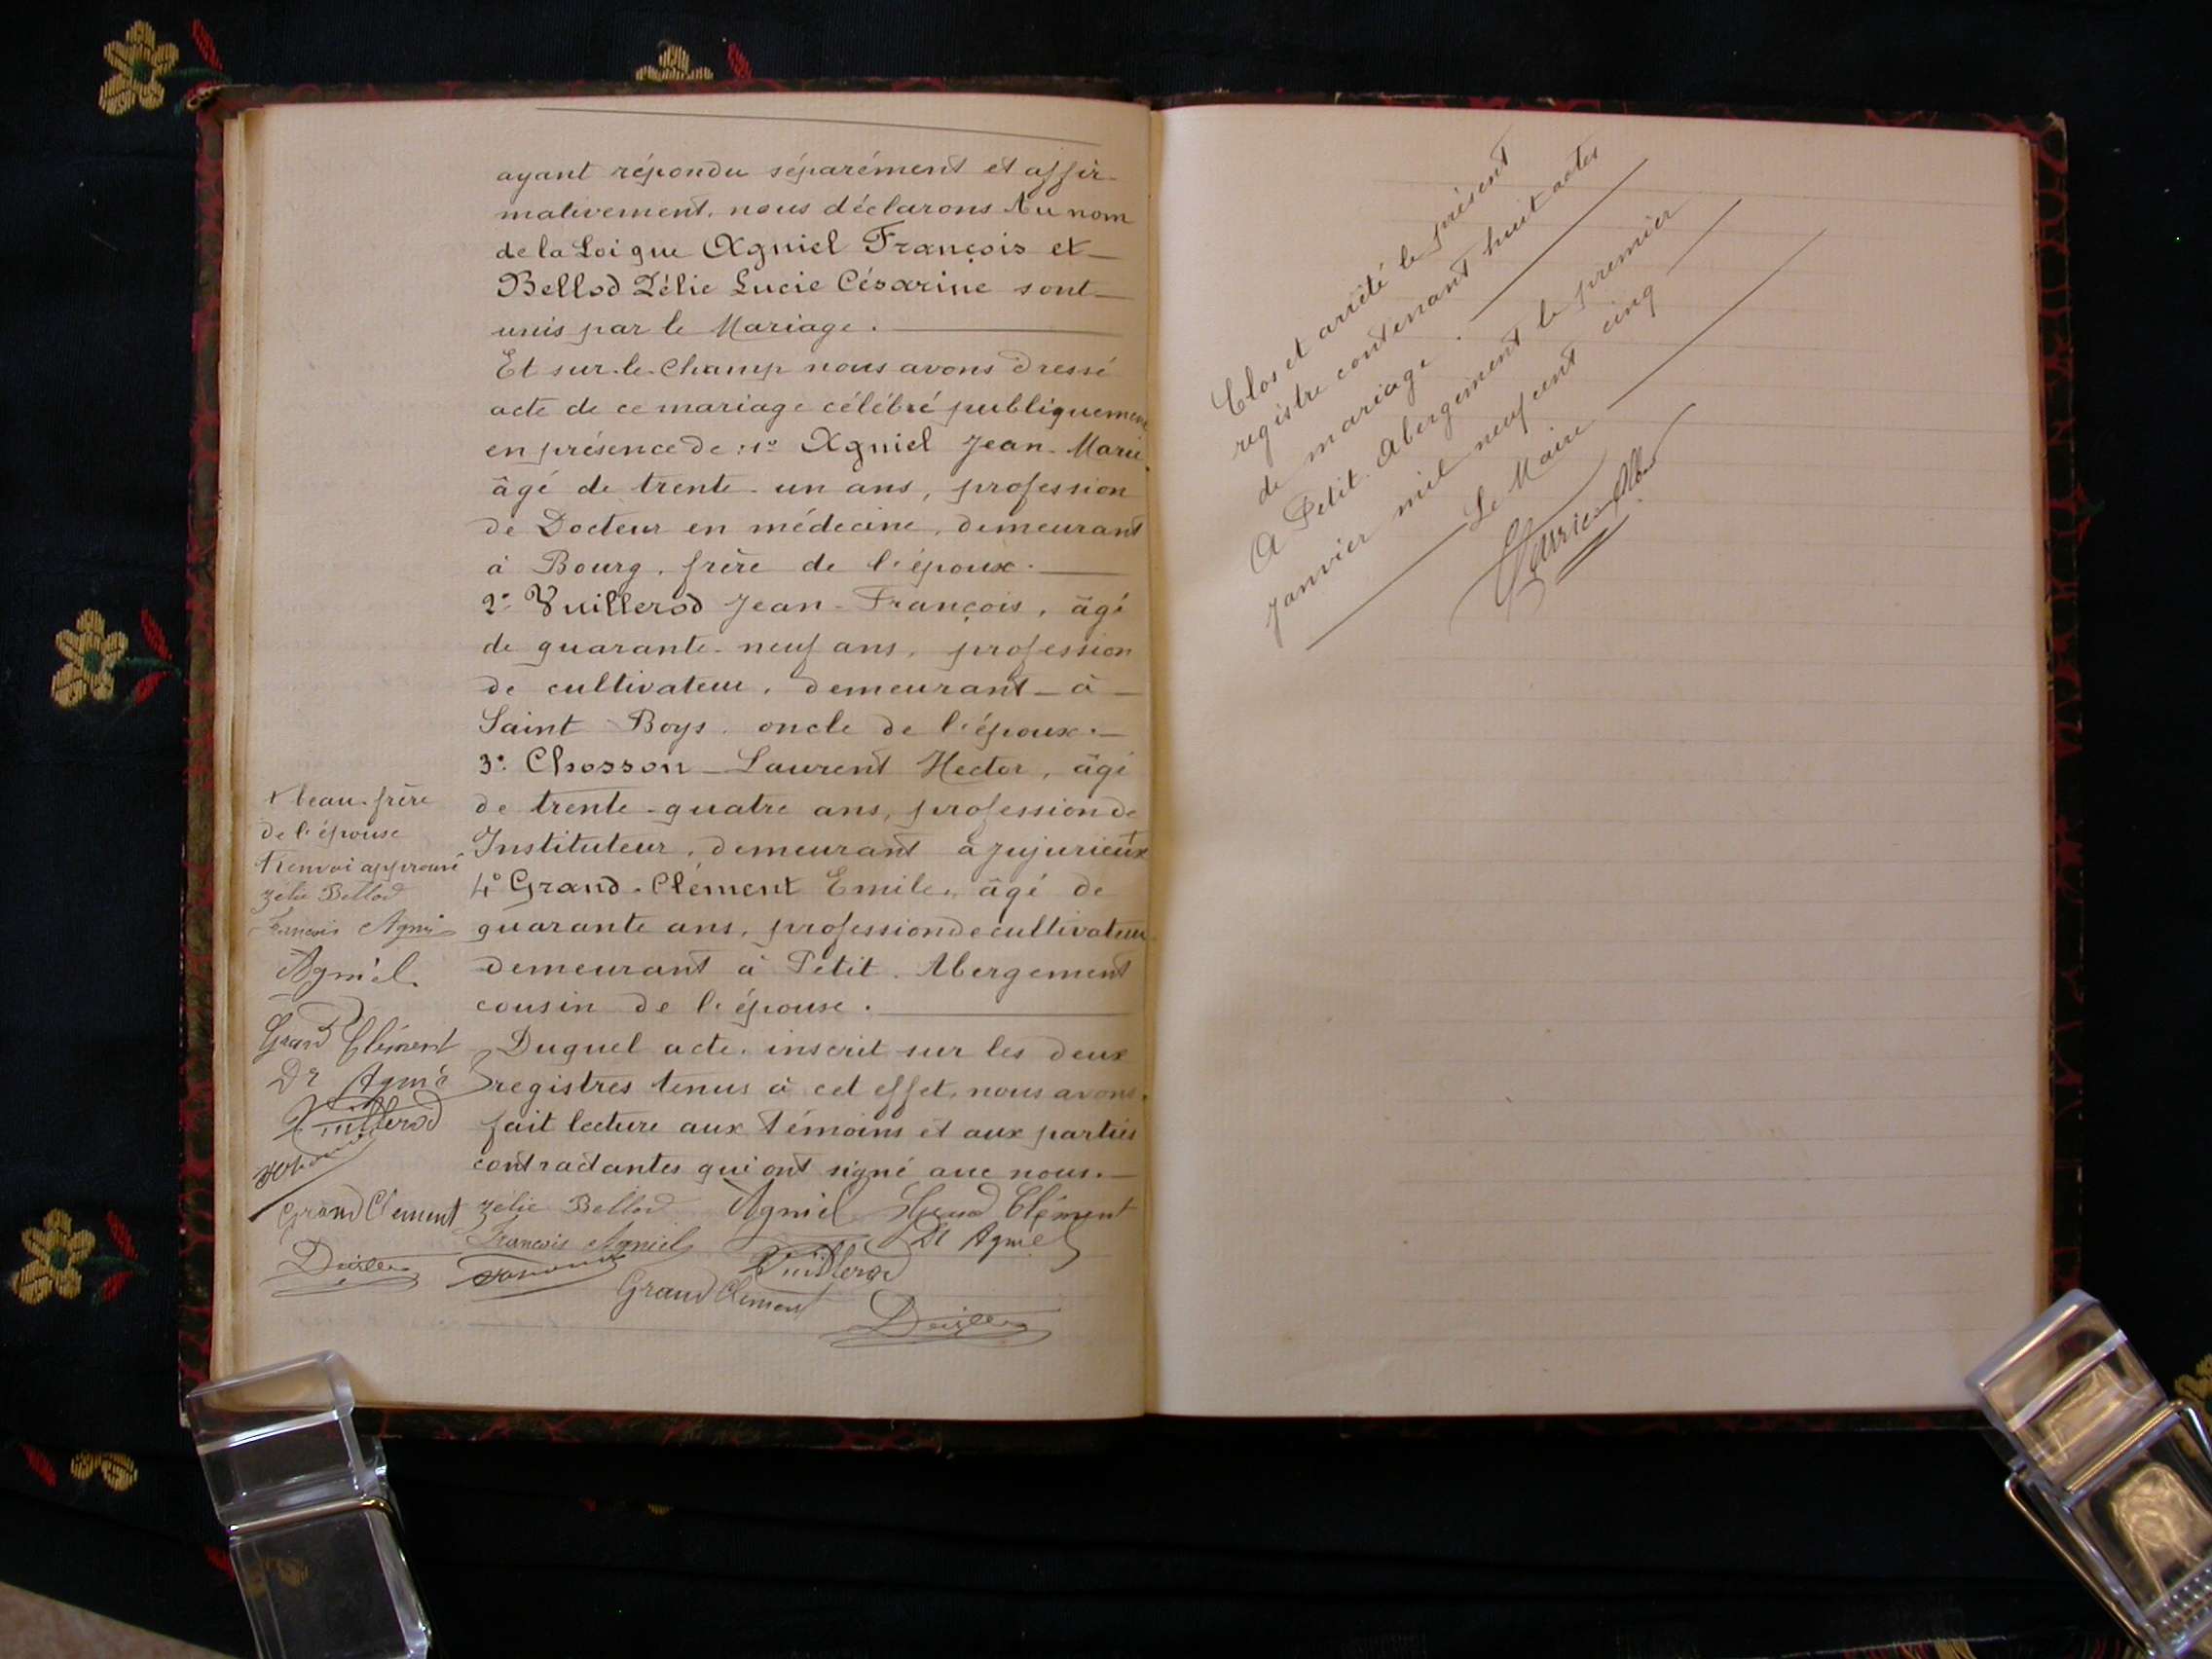 ayant répondu séparément et affir-
mativement, nous déclarons Au nom
de la Loi que Agniel François et
Bellod Zélie Lucie Césarine sont
unis par le Mariage.
Et sur-le-Champ nous avons dressé
acte de ce mariage célébré publiquement
en présence de : 1° Agniel Jean-Marie
âgé de trente-un ans, profession
de Docteur en médecine, demeurant
à Bourg, frère de l'époux.
2° Vuillerod Jean-François, âgé
de quarante-neuf ans, profession
de cultivateur, demeurant à
Saint Boys, oncle de l'époux.
3° Chosson Laurent Hector, âgé
de trente-quatre ans, profession de
Instituteur, demeurant à Jujurieux
4° Grand-Clément Emile, âgé de
quarante ans, profession de cultivateur
demeurant à Petit-Abergement
cousin de l'épouse.
Duquel acte, inscrit sur les deux
registres tenus à cet effet, nous avons
fait lecture aux témoins et aux parties
contractantes qui ont signé avec nous.
beau-frère
de l'épouse
Renvoi approuvé
Zélie Bellod
François Agniel
Agniel
Grand Clément
Dr Agniel
Vuillerod
Grand Clement
Zélie Bellod Agniel Grand Clément
François Agniel Dr Agniel
Vuillerod
Grand Clement
Clos et arrêté le présent
registre contenant huit actes
de mariage.
A Petit-Abergement le premier
janvier mil neuf cent cinq
Le Maire